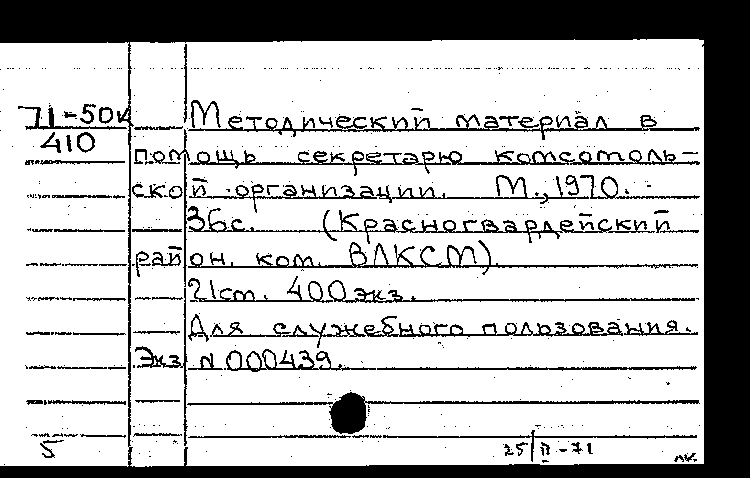 71-50к Методический материал в
410
помощь секретарю комсомоль-
ской организации. М., 1970.
36с. (Красногвардейский
район. ком. ВЛКСМ).
21см. 400экз.
Для служебного пользования.
Экз N 000439.
5
25/II-71